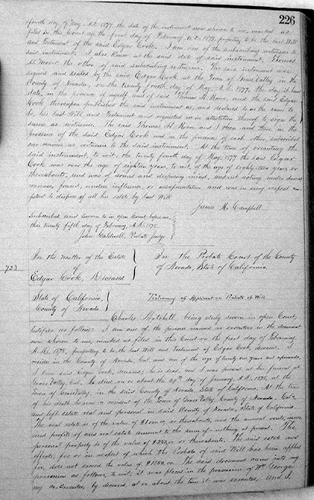 226
fourth day of May A.D. 1877, the date of the instrument now shown to me, marked as
filed in this Court on the first day of February A.D. 1878, purporting to be the last Will
and Testament of the said Edgar Cook. I am one of the subscribing witnesses to
said instrument. I also knew at the said date of said instrument, Thomas
H. Rowe the other of said subscribing witnesses. The said instrument was
signed and sealed by the said Edgar Cook at the Town of Grass Valley, in the
County of Nevada, on the twenty fourth day of May, A.D. 1877, the day it bears
date, in the presence of myself and of said Thomas H. Rowe, and the said Edgar
Cook thereupon published the said instrument as, and declared to us the same to
be, his last Will and Testament and requested us in attestation thereof to sign the
same as witnesses. The said Thomas H. Rowe and I then and there, in the
presence of the said Edgar Cook and in the presence of each other subscribed
our names as witnesses to the said instrument. At the time of executing the
said instrument, to wit: the twenty fourth day of May, 1877 the said Edgar
Cook was over the age of eighteen years, to wit, of the age of
thereabouts, and was of sound and disposing mind, and not acting under duress
menace, fraud, undue influence, or misrepresentation and was in every respect com-
petent to dispose of all his estate by last Will
James M. Campbell
Subscribed and sworn to in open Court before me
this twenty fifth day of February A.D. 1878
John Caldwell, Probate Judge
In the Matter of the Estate
of
Edgar Cook, Deceased
In the Probate Court of the County
of Nevada, State of California
723
State of California
County of Nevada
Testimony of Applicant on Probate of Will
Charles being duly sworn in open Court,
testifies as follows: I am one of the persons named as executors in the document
now shown to me, marked as filed in this Court on the first day of February
A.D. 1878, purporting to be the last Will and Testament of Edgar Cook deceased. I
reside in the County of Nevada, and am over the age of twenty one years and upwards,
I knew said Edgar Cook, deceased; he is dead and I was present at his funeral at
Grass Valley, Cal; he died on or about the day of January A.D. 1878, at the
Town of Grass Valley, in the said County of Nevada State of California. At the time
of his death he was a resident of the Town of Grass Valley, County of Nevada, Cal:
and left estate real and personal in said County of Nevada, State of California
The real estate is of the value of or thereabouts, and the annual rents issues
and profits of said real estate amount to the sum of nothing at present. The
personal property is of the value of or thereabouts. The said estate and
effects, for or in respect of which the Probate of said Will has been applied
for, does not exceed the value of The said document came into my
possession as follows, namely: it was placed in the possession of Wm George
my co-executor, by deceased, at or about the time it was executed, and I